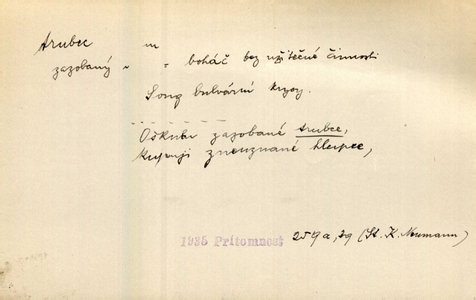 trubec m
zazobaný ~ = boháč bez užitečné činnosti
Song bulvární krysy.
Oškubu zazobané trubce,
kupuji zneuznané hlupce,
1935 Přítomnost 259a, 29 (St. K. Neumann)